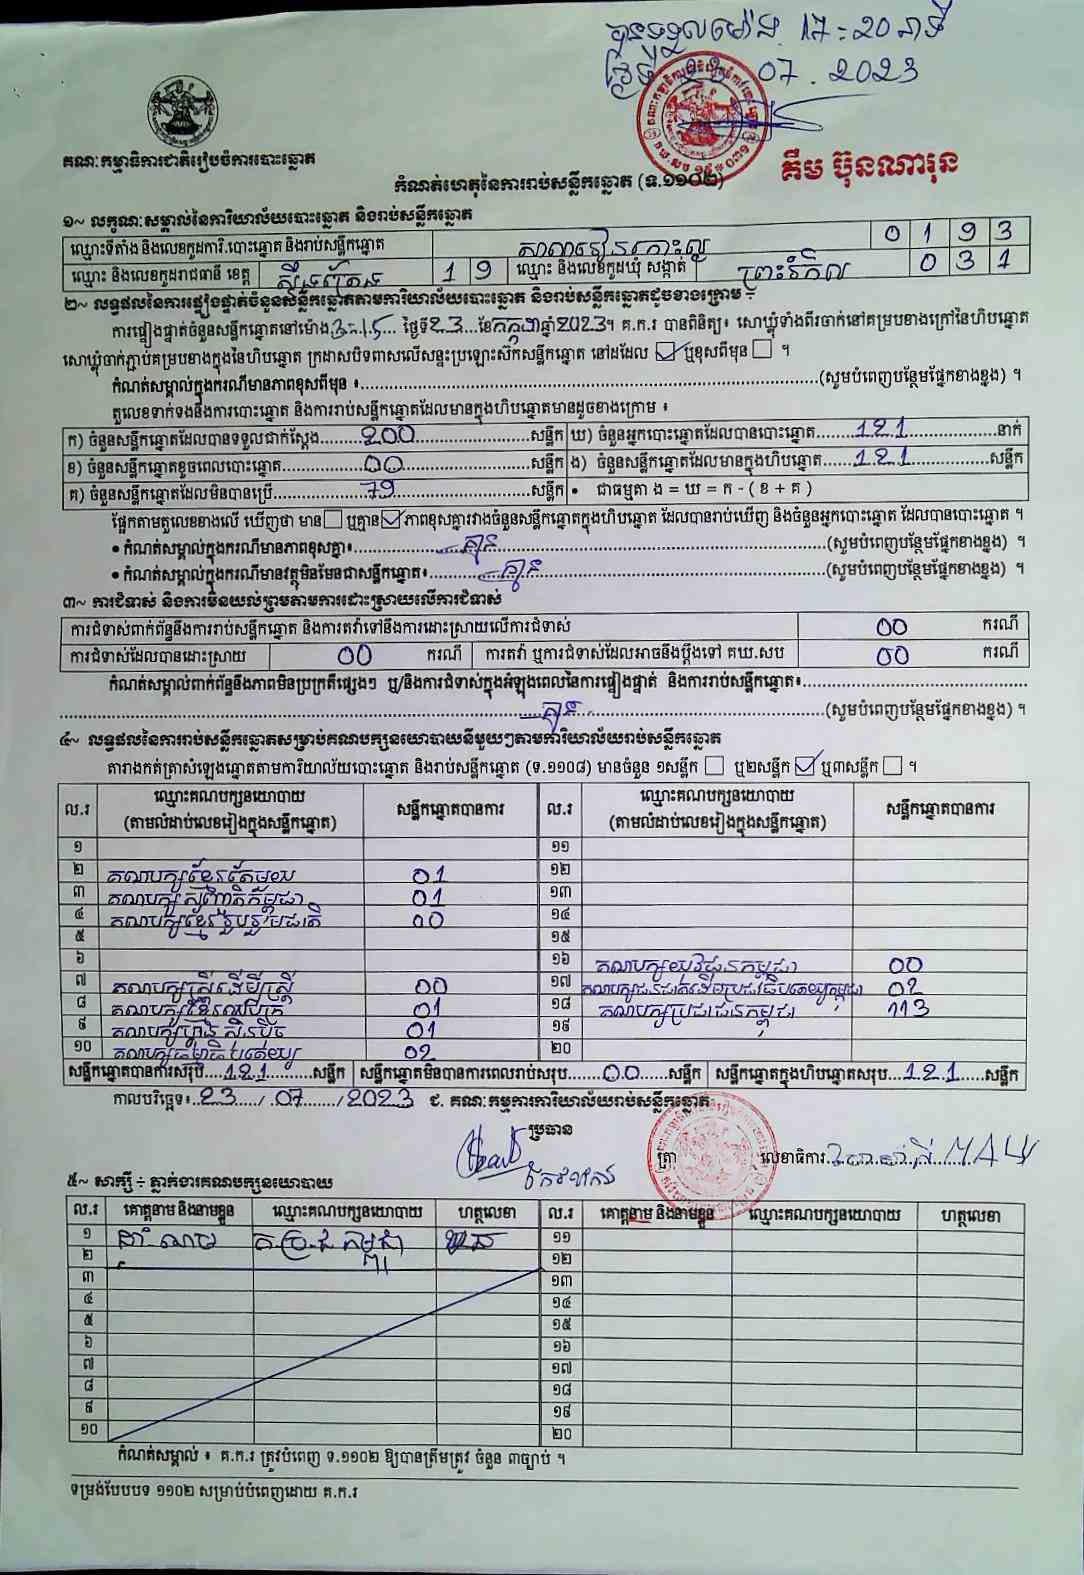 បានទទួលម៉ោង 17:20 នាទី
ថ្ងៃទី 23 . 07 . 2023
គណៈកម្មាធិការជាតិរៀបចំការបោះឆ្នោត
គឹម ប៊ុនណារុន
កំណត់ហេតុនៃការរាប់សន្លឹកឆ្នោត (ទ.១១០២)
១~ លក្ខណៈសម្គាល់នៃការិយាល័យបោះឆ្នោត និងរាប់សន្លឹកឆ្នោត
ឈ្មោះទីតាំង និងលេខកូដការិ.បោះឆ្នោត និងរាប់សន្លឹកឆ្នោត សាលារៀនកោះល្ង 0 1 9 3
ឈ្មោះ និងលេខកូដរាជធានី ខេត្ត ស្ទឹងត្រែង 1 9 ឈ្មោះ និងលេខកូដឃុំ សង្កាត់ ព្រះរំកិល 0 3 1
២~ លទ្ធផលនៃការផ្ទៀងផ្ទាត់ចំនួនសន្លឹកឆ្នោតតាមការិយាល័យបោះឆ្នោត និងរាប់សន្លឹកឆ្នោតដូចខាងក្រោម ÷
ការផ្ទៀងផ្ទាត់ចំនួនសន្លឹកឆ្នោតនៅម៉ោង 3:15 ថ្ងៃទី 23 ខែ កក្កដា ឆ្នាំ 2023។ គ.ក.រ បានពិនិត្យ៖ សោឃ្លុំទាំងពីរចាក់នៅគម្របខាងក្រៅនៃហិបឆ្នោត
សោឃ្លុំចាក់ភ្ជាប់គម្របខាងក្នុងនៃហិបឆ្នោត ក្រដាសបិទពាសលើសន្ទះប្រឡោះស៊កសន្លឹកឆ្នោត នៅដដែល ☑ ឬខុសពីមុន ☐ ។
កំណត់សម្គាល់ក្នុងករណីមានភាពខុសពីមុន ៖..........(សូមបំពេញបន្ថែមផ្នែកខាងខ្នង) ។
តួលេខទាក់ទងនឹងការបោះឆ្នោត និងការរាប់សន្លឹកឆ្នោតដែលមានក្នុងហិបឆ្នោតមានដូចខាងក្រោម ៖
ក) ចំនួនសន្លឹកឆ្នោតដែលបានទទួលជាក់ស្តែង 200 សន្លឹក ឃ) ចំនួនអ្នកបោះឆ្នោតដែលបានបោះឆ្នោត 121 នាក់
ខ) ចំនួនសន្លឹកឆ្នោតខូចពេលបោះឆ្នោត 00 សន្លឹក ង) ចំនួនសន្លឹកឆ្នោតដែលមានក្នុងហិបឆ្នោត 121 សន្លឹក
គ) ចំនួនសន្លឹកឆ្នោតដែលមិនបានប្រើ 79 សន្លឹក • ជាធម្មតា ង = ឃ = ក - ( ខ + គ )
ផ្អែកតាមតួលេខខាងលើ ឃើញថា មាន ☐ ឬគ្មាន ☑ ភាពខុសគ្នារវាងចំនួនសន្លឹកឆ្នោតក្នុងហិបឆ្នោត ដែលបានរាប់ឃើញ និងចំនួនអ្នកបោះឆ្នោត ដែលបានបោះឆ្នោត ។
• កំណត់សម្គាល់ក្នុងករណីមានភាពខុសគ្នា៖ គ្មាន (សូមបំពេញបន្ថែមផ្នែកខាងខ្នង) ។
• កំណត់សម្គាល់ក្នុងករណីមានវត្ថុមិនមែនជាសន្លឹកឆ្នោត៖ គ្មាន (សូមបំពេញបន្ថែមផ្នែកខាងខ្នង) ។
៣~ ការជំទាស់ និងការមិនយល់ព្រមតាមការដោះស្រាយលើការជំទាស់
ការជំទាស់ពាក់ព័ន្ធនឹងការរាប់សន្លឹកឆ្នោត និងការតវ៉ាទៅនឹងការដោះស្រាយលើការជំទាស់ 00 ករណី
ការជំទាស់ដែលបានដោះស្រាយ 00 ករណី ការតវ៉ា ឬការជំទាស់ដែលអាចនឹងប្តឹងទៅ គឃ.សប 00 ករណី
កំណត់សម្គាល់ពាក់ព័ន្ធនឹងភាពមិនប្រក្រតីផ្សេងៗ ឬ/និងការជំទាស់ក្នុងអំឡុងពេលនៃការផ្ទៀងផ្ទាត់ និងការរាប់សន្លឹកឆ្នោត៖
គ្មាន (សូមបំពេញបន្ថែមផ្នែកខាងខ្នង) ។
៤~ លទ្ធផលនៃការរាប់សន្លឹកឆ្នោតសម្រាប់គណបក្សនយោបាយនីមួយៗតាមការិយាល័យរាប់សន្លឹកឆ្នោត
តារាងកត់ត្រាសំឡេងឆ្នោតតាមការិយាល័យបោះឆ្នោត និងរាប់សន្លឹកឆ្នោត (ទ.១១០៨) មានចំនួន ១សន្លឹក ☐ ឬ២សន្លឹក ☑ ឬ៣សន្លឹក ☐ ។
ល.រ ឈ្មោះគណបក្សនយោបាយ (តាមលំដាប់លេខរៀងក្នុងសន្លឹកឆ្នោត) សន្លឹកឆ្នោតបានការ ល.រ ឈ្មោះគណបក្សនយោបាយ (តាមលំដាប់លេខរៀងក្នុងសន្លឹកឆ្នោត) សន្លឹកឆ្នោតបានការ
១ ១១
២ គណបក្សខ្មែរតែមួយ 01 ១២
៣ គណបក្សសញ្ជាតិកម្ពុជា 01 ១៣
៤ គណបក្សខ្មែររួបរួមជាតិ 00 ១៤
៥ ១៥
៦ ១៦ គណបក្សយុវជនកម្ពុជា 00
៧ គណបក្សស្ត្រីដើម្បីស្ត្រី 00 ១៧ 02
៨ 01 ១៨ គណបក្សប្រជាជនកម្ពុជា 113
៩ 01 ១៩
១០ គណបក្សធម្មាធិបតេយ្យ 02 ២០
សន្លឹកឆ្នោតបានការសរុប 121 សន្លឹក សន្លឹកឆ្នោតមិនបានការពេលរាប់សរុប 00 សន្លឹក សន្លឹកឆ្នោតក្នុងហិបឆ្នោតសរុប 121 សន្លឹក
កាលបរិច្ឆេទ៖ 23 / 07 / 2023 ជ. គណៈកម្មការការិយាល័យរាប់សន្លឹកឆ្នោត
ប្រធាន
ត្រា លេខាធិការ
៥~ សាក្សី ÷ ភ្នាក់ងារគណបក្សនយោបាយ
ល.រ គោត្តនាម និងនាមខ្លួន ឈ្មោះគណបក្សនយោបាយ ហត្ថលេខា ល.រ គោត្តនាម និងនាមខ្លួន ឈ្មោះគណបក្សនយោបាយ ហត្ថលេខា
១ គ.ប្រ.ជ កម្ពុជា ១១
២ ១២
៣ ១៣
៤ ១៤
៥ ១៥
៦ ១៦
៧ ១៧
៨ ១៨
៩ ១៩
១០ ២០
កំណត់សម្គាល់ ៖ គ.ក.រ ត្រូវបំពេញ ទ.១១០២ ឱ្យបានត្រឹមត្រូវ ចំនួន ៣ច្បាប់ ។
ទម្រង់បែបបទ ១១០២ សម្រាប់បំពេញដោយ គ.ក.រ